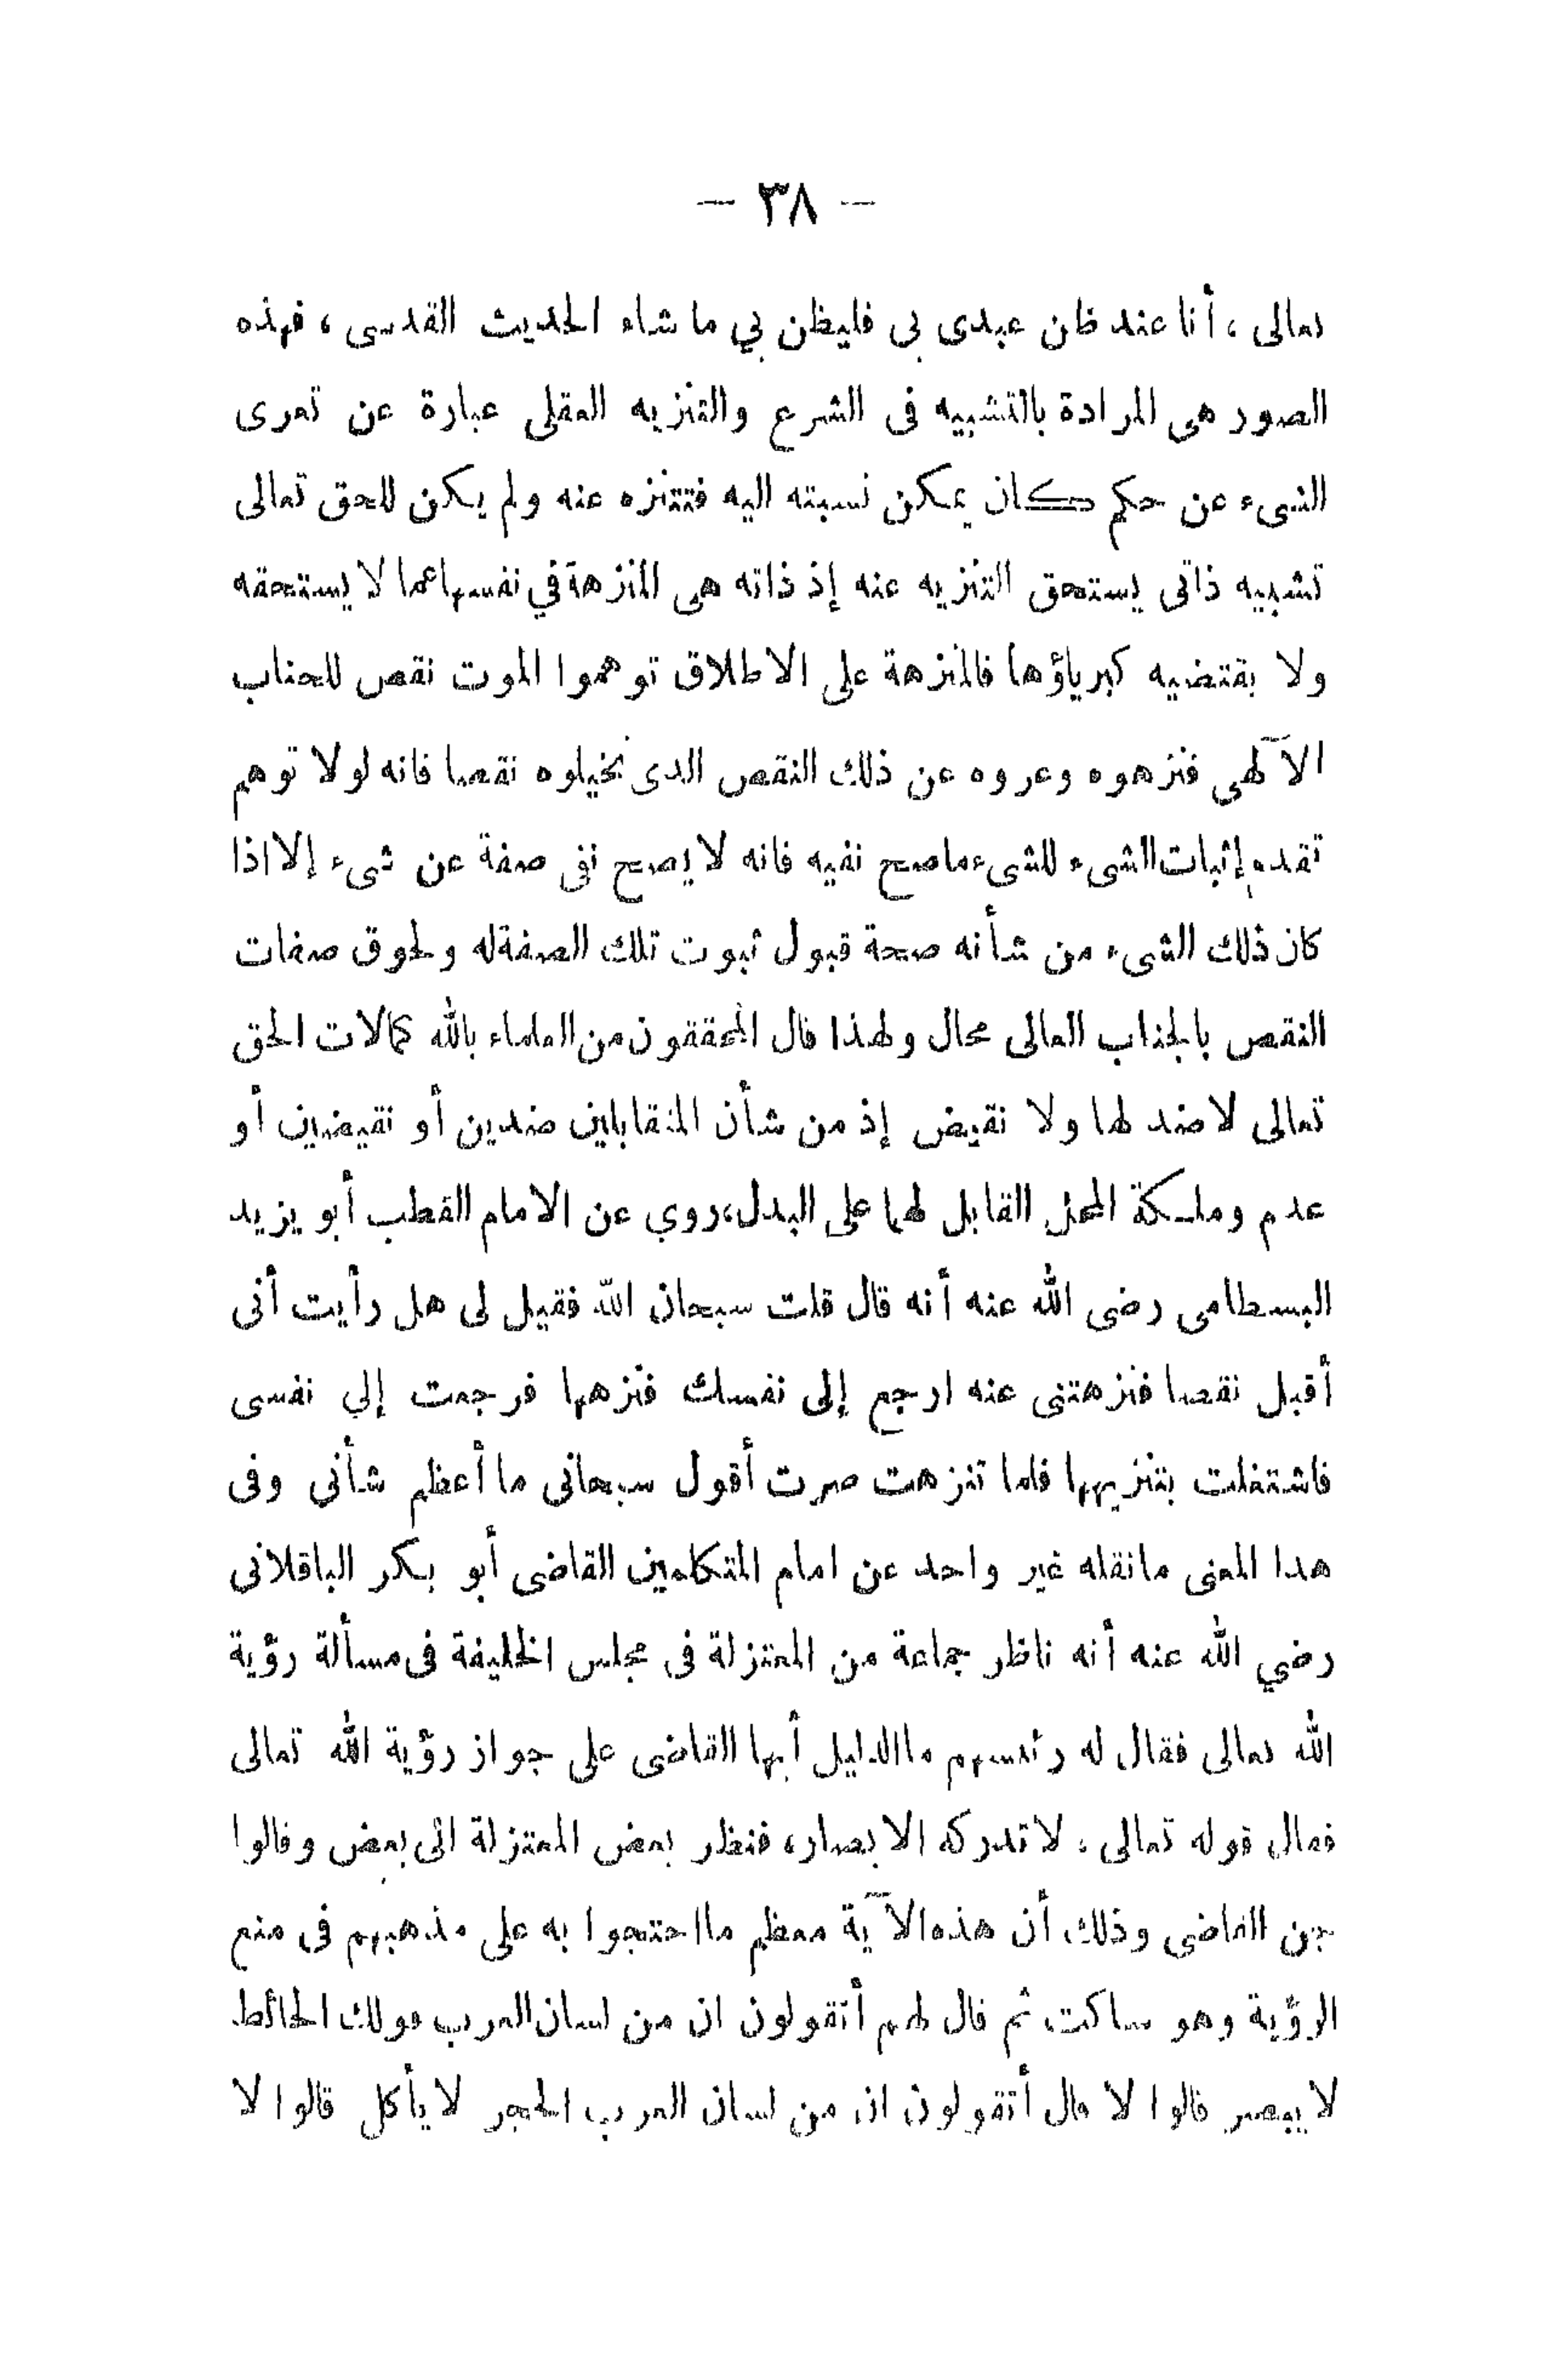 — ٣٨ —
تعالى ، أنا عند ظن عبدى بى فليظن بي ما شاء الحديث القدسى ، فهذه
الصور هى المرادة بالتشبيه فى الشرع والتنزيه العقلى عبارة عن تعرى
الشىء عن حكم كان يمكن نسبته اليه فتتنزه عنه ولم يكن للحق تعالى
تشبيه ذاتى يستحق التنزيه عنه إذ ذاته هى المنزهة في نفسها عما لا يستحقه
ولا يقتضيه كبرياؤها فالمنزهة على الاطلاق توهموا الموت نقص للجناب
الآلهى فنزهوه وعروه عن ذلك النقص الذى تخيلوه نقصا فانه لولا توهم
تقدم إثبات الشىء للشىء ما صح نفيه فانه لا يصح نفى صفة عن شىء إلا اذا
كان ذلك الشىء من شأنه صحة قبول ثبوت تلك الصفة له ولحوق صفات
النقص بالجناب العالى محال ولهذا قال المحققون من العلماء بالله كمالات الحق
تعالى لا ضد لها ولا نقيض إذ من شأن المتقابلين ضدين أو نقيضين أو
عدم وملكة المحل القابل لهما على البدل، روي عن الامام القطب أبو يزيد
البسطامى رضى الله عنه أنه قال قلت سبحان الله فقيل لى هل رأيت أنى
أقبل نقصا فنزهتنى عنه ارجع إلى نفسك فنزهها فرجعت إلي نفسى
فاشتغلت بتنزيهها فلما تنزهت صرت أقول سبحانى ما أعظم شأنى وفى
هذا المعنى ما نقله غير واحد عن امام المتكلمين القاضى أبو بكر الباقلانى
رضي الله عنه أنه ناظر جماعة من المعتزلة فى مجلس الخليفة فى مسألة رؤية
الله تعالى فقال له رئيسهم ما الدليل أيها القاضى على جواز رؤية الله تعالى
فقال قوله تعالى ، لا تدركه الابصار، فنظر بعض المعتزلة الى بعض وقالوا
جن القاضى وذلك أن هذه الآية معظم ما احتجوا به على مذهبهم فى منع
الرؤية وهو ساكت ثم قال لهم أتقولون ان من لسان العرب قولك الحائط
لا يبصر قالوا لا قال أتقولون ان من لسان العرب الحجر لا يأكل قالوا لا